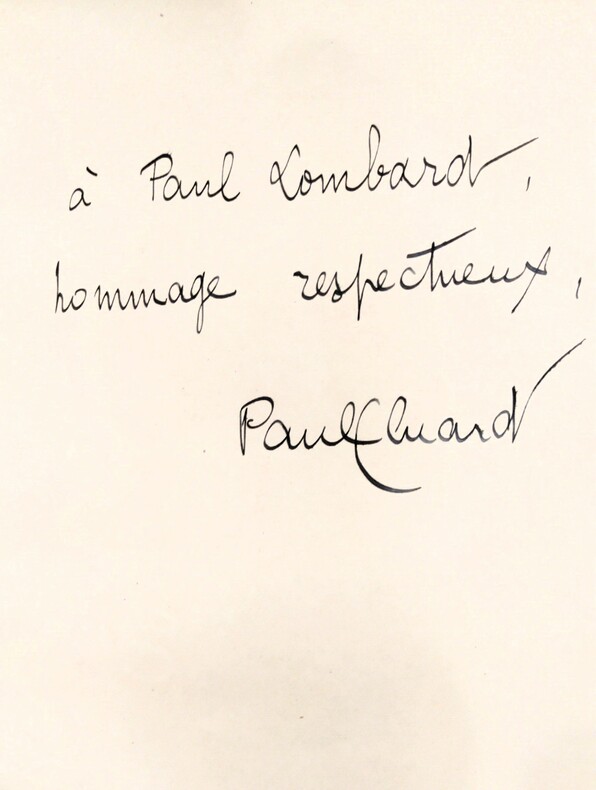 à Paul Lombard,
hommage respectueux,
Paul Eluard